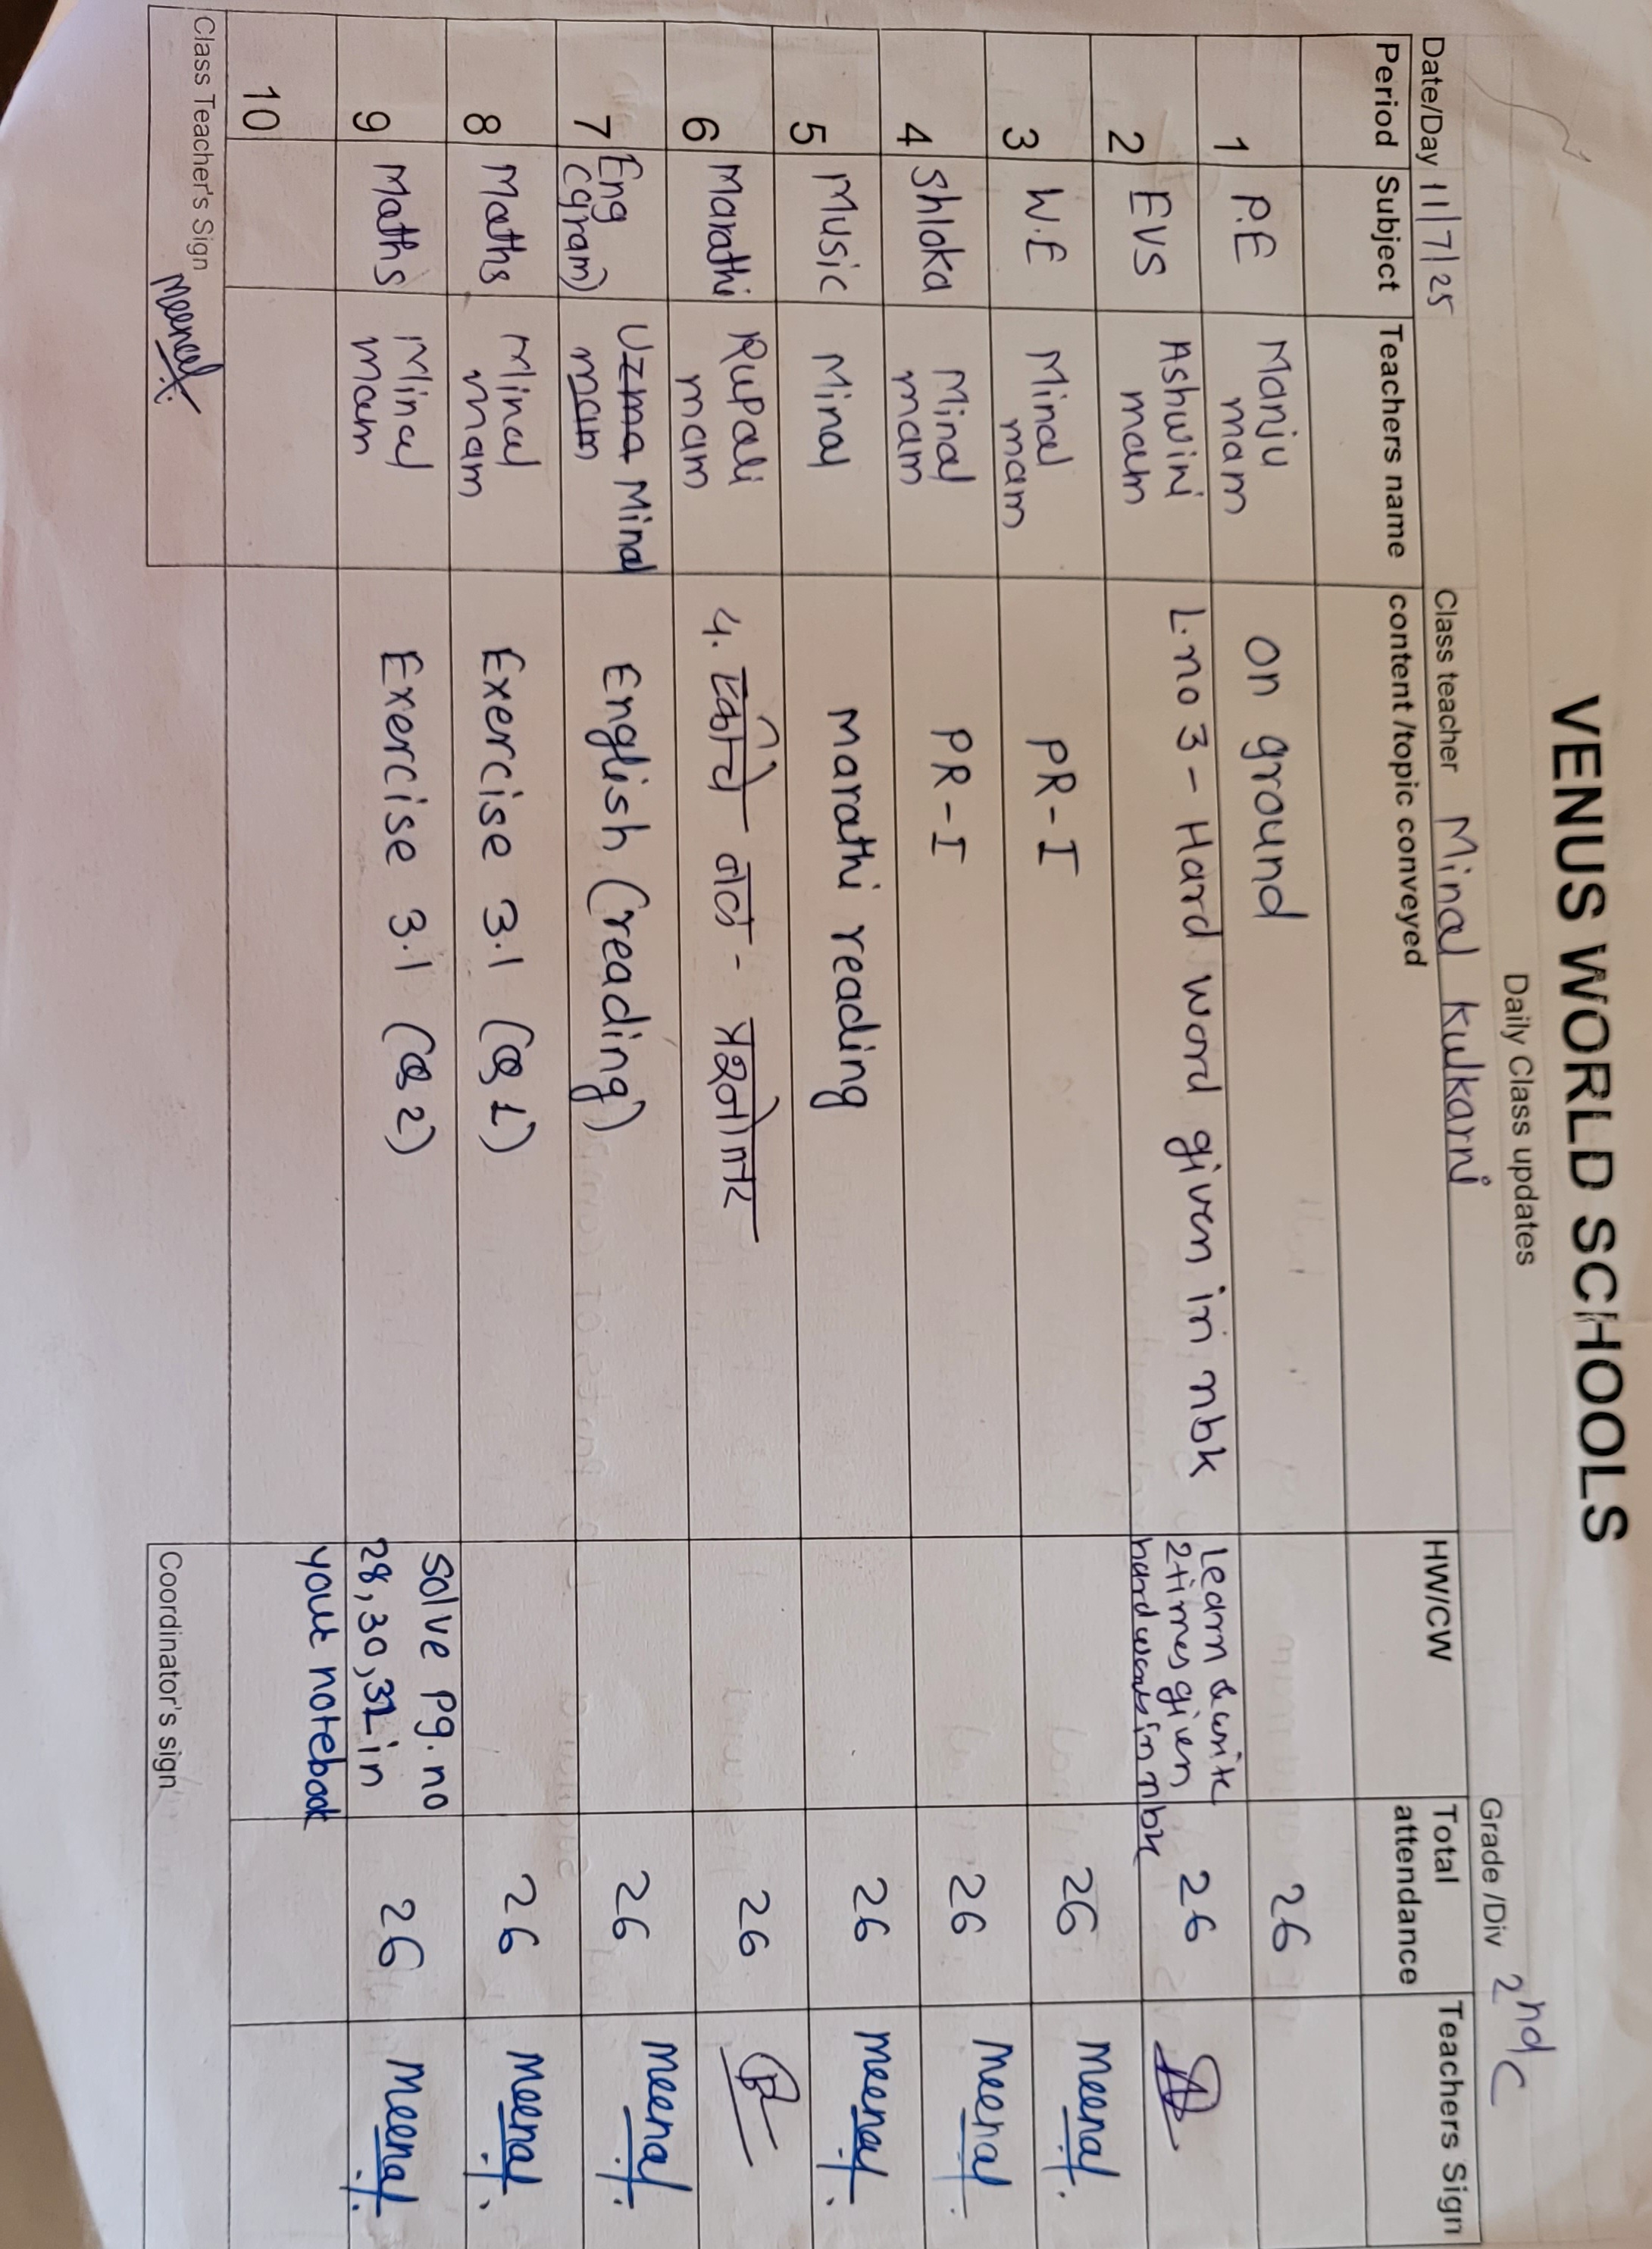 VENUS WORLD SCHOOLS
Daily Class updates
Date/Day 11/7/25 Class teacher Minal Kulkarni Grade /Div 2nd C
Period Subject Teachers name content /topic conveyed HW/CW Total attendance Teachers Sign
1 P.E Manju mam on ground 26
2 EVS Ashwini mam L.no 3 - Hard word given in nbk Learn & write 2times given hard words in nbk 26
3 W.E Minal mam PR-I 26 Meenal.
4 Shloka Minal mam PR-I 26 Meenal.
5 Music Minal marathi reading 26 Meenal.
6 Marathi Rupali mam 4. नवा - प्रश्नोत्तर 26
7 Eng (gram) Uzma mam Minal English (reading) 26 Meenal.
8 Maths Minal mam Exercise 3.1 (Q 1) 26 Meenal.
9 Maths Minal mam Exercise 3.1 (Q 2) Solve pg. no 28, 30, 31 in your notebook 26 Meenal.
10
Class Teacher's Sign Meenal. Coordinator's sign